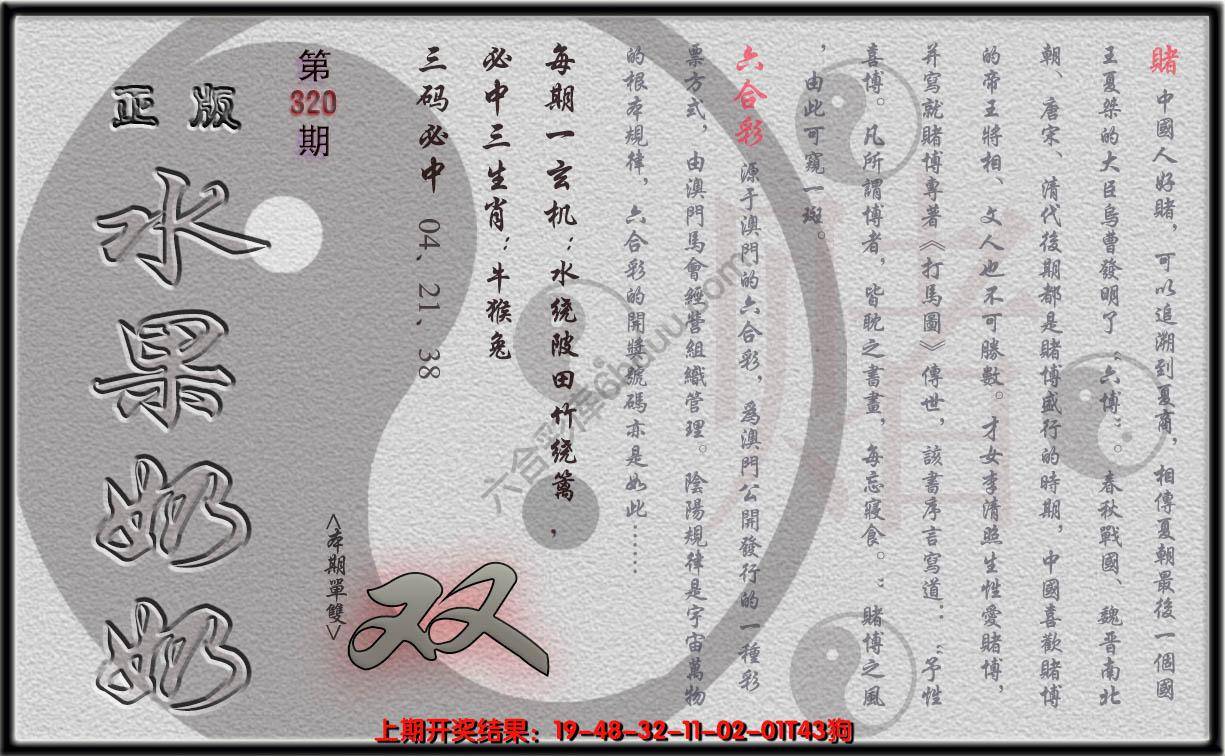 賭 中國人好賭，可以追溯到夏商，相傳夏朝最後一個國
王夏桀的大臣烏曹發明了“六博”。春秋戰國、魏晋南北
朝、唐宋、清代後期都是賭博盛行的時期，中國喜歡賭博
的帝王將相、文人也不可勝數。才女李清照生性愛賭博，
并寫就賭博專著《打馬圖》傳世，該書序言寫道：“予性
喜博。凡所謂博者，皆耽之書晝，每忘寢食。”賭博之風
，由此可窺一斑。
六合彩 源于澳門的六合彩，爲澳門公開發行的一種彩
票方式，由澳門馬會經營組織管理。陰陽規律是宇宙萬物
的根本規律，六合彩的開獎號碼亦是如此……
每期一玄机：水绕陂田竹绕篱，
必中三生肖：牛猴兔
三码必中 04、21、38
第320期
正版
水果奶奶
<本期單雙>
双
六合彩律6huuu.com
上期开奖结果：19-48-32-11-02-01T43狗